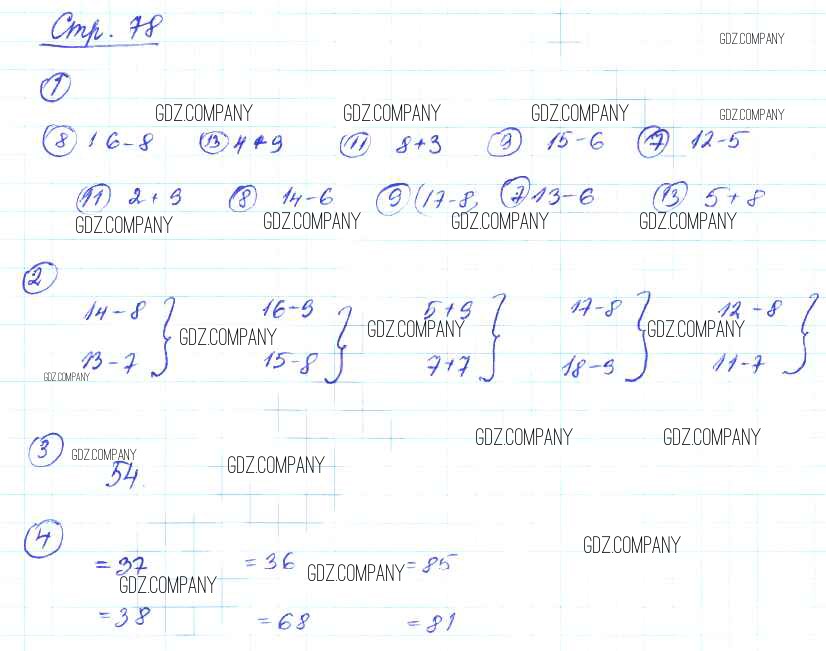 Стр. 78
GDZ.COMPANY
1
GDZ.COMPANY GDZ.COMPANY GDZ.COMPANY GDZ.COMPANY
8 16-8 13 4+9 11 8+3 9 15-6 7 12-5
11 2+9 8 14-6 9 (17-8) 7 13-6 13 5+8
GDZ.COMPANY GDZ.COMPANY GDZ.COMPANY GDZ.COMPANY
2
14-8 } 16-9 } 5+9 } 17-8 } 12-8 }
GDZ.COMPANY GDZ.COMPANY GDZ.COMPANY
13-7 15-8 7+7 18-9 11-7
GDZ.COMPANY
3
GDZ.COMPANY GDZ.COMPANY GDZ.COMPANY GDZ.COMPANY
54.
4
GDZ.COMPANY
=37 =36 =85
GDZ.COMPANY GDZ.COMPANY
=38 =68 =81